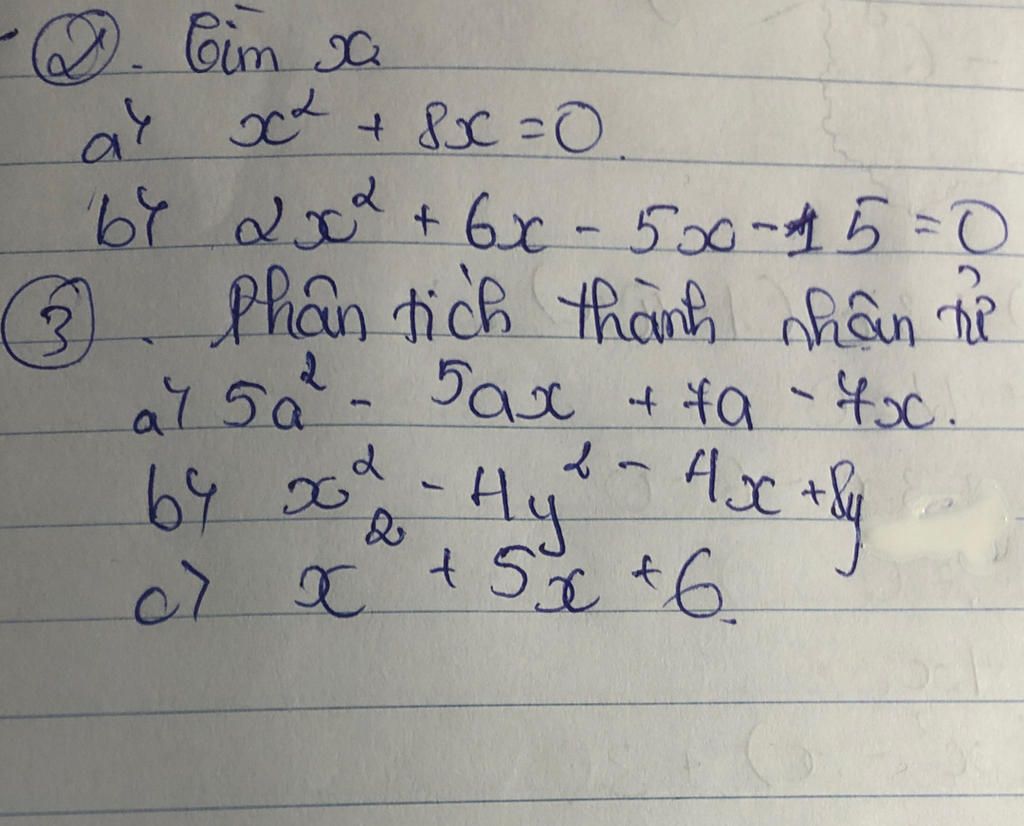 ②. Tìm x
a) x² + 8x = 0.
b) 2x² + 6x - 5x - 15 = 0
③. Phân tích thành nhân tử
a) 5a² - 5ax + 7a - 7x.
b) x² - 4y² - 4x + 8y
c) x² + 5x + 6.